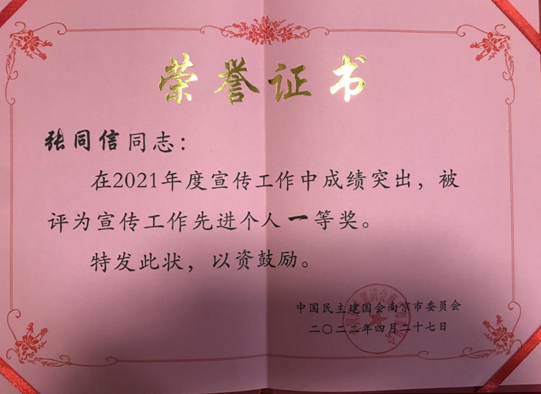 荣誉证书
张同信同志：
在2021年度宣传工作中成绩突出，被
评为宣传工作先进个人一等奖。
特发此状，以资鼓励。
中国民主建国会南京市委员会
二〇二二年四月二十七日